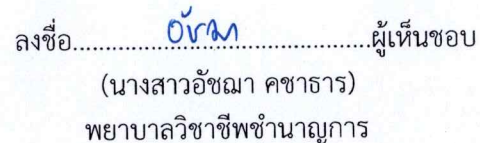 ลงชื่อ........................................ผู้เห็นชอบ
(นางสาวอัชฌา คชาธาร)
พยาบาลวิชาชีพชำนาญการ